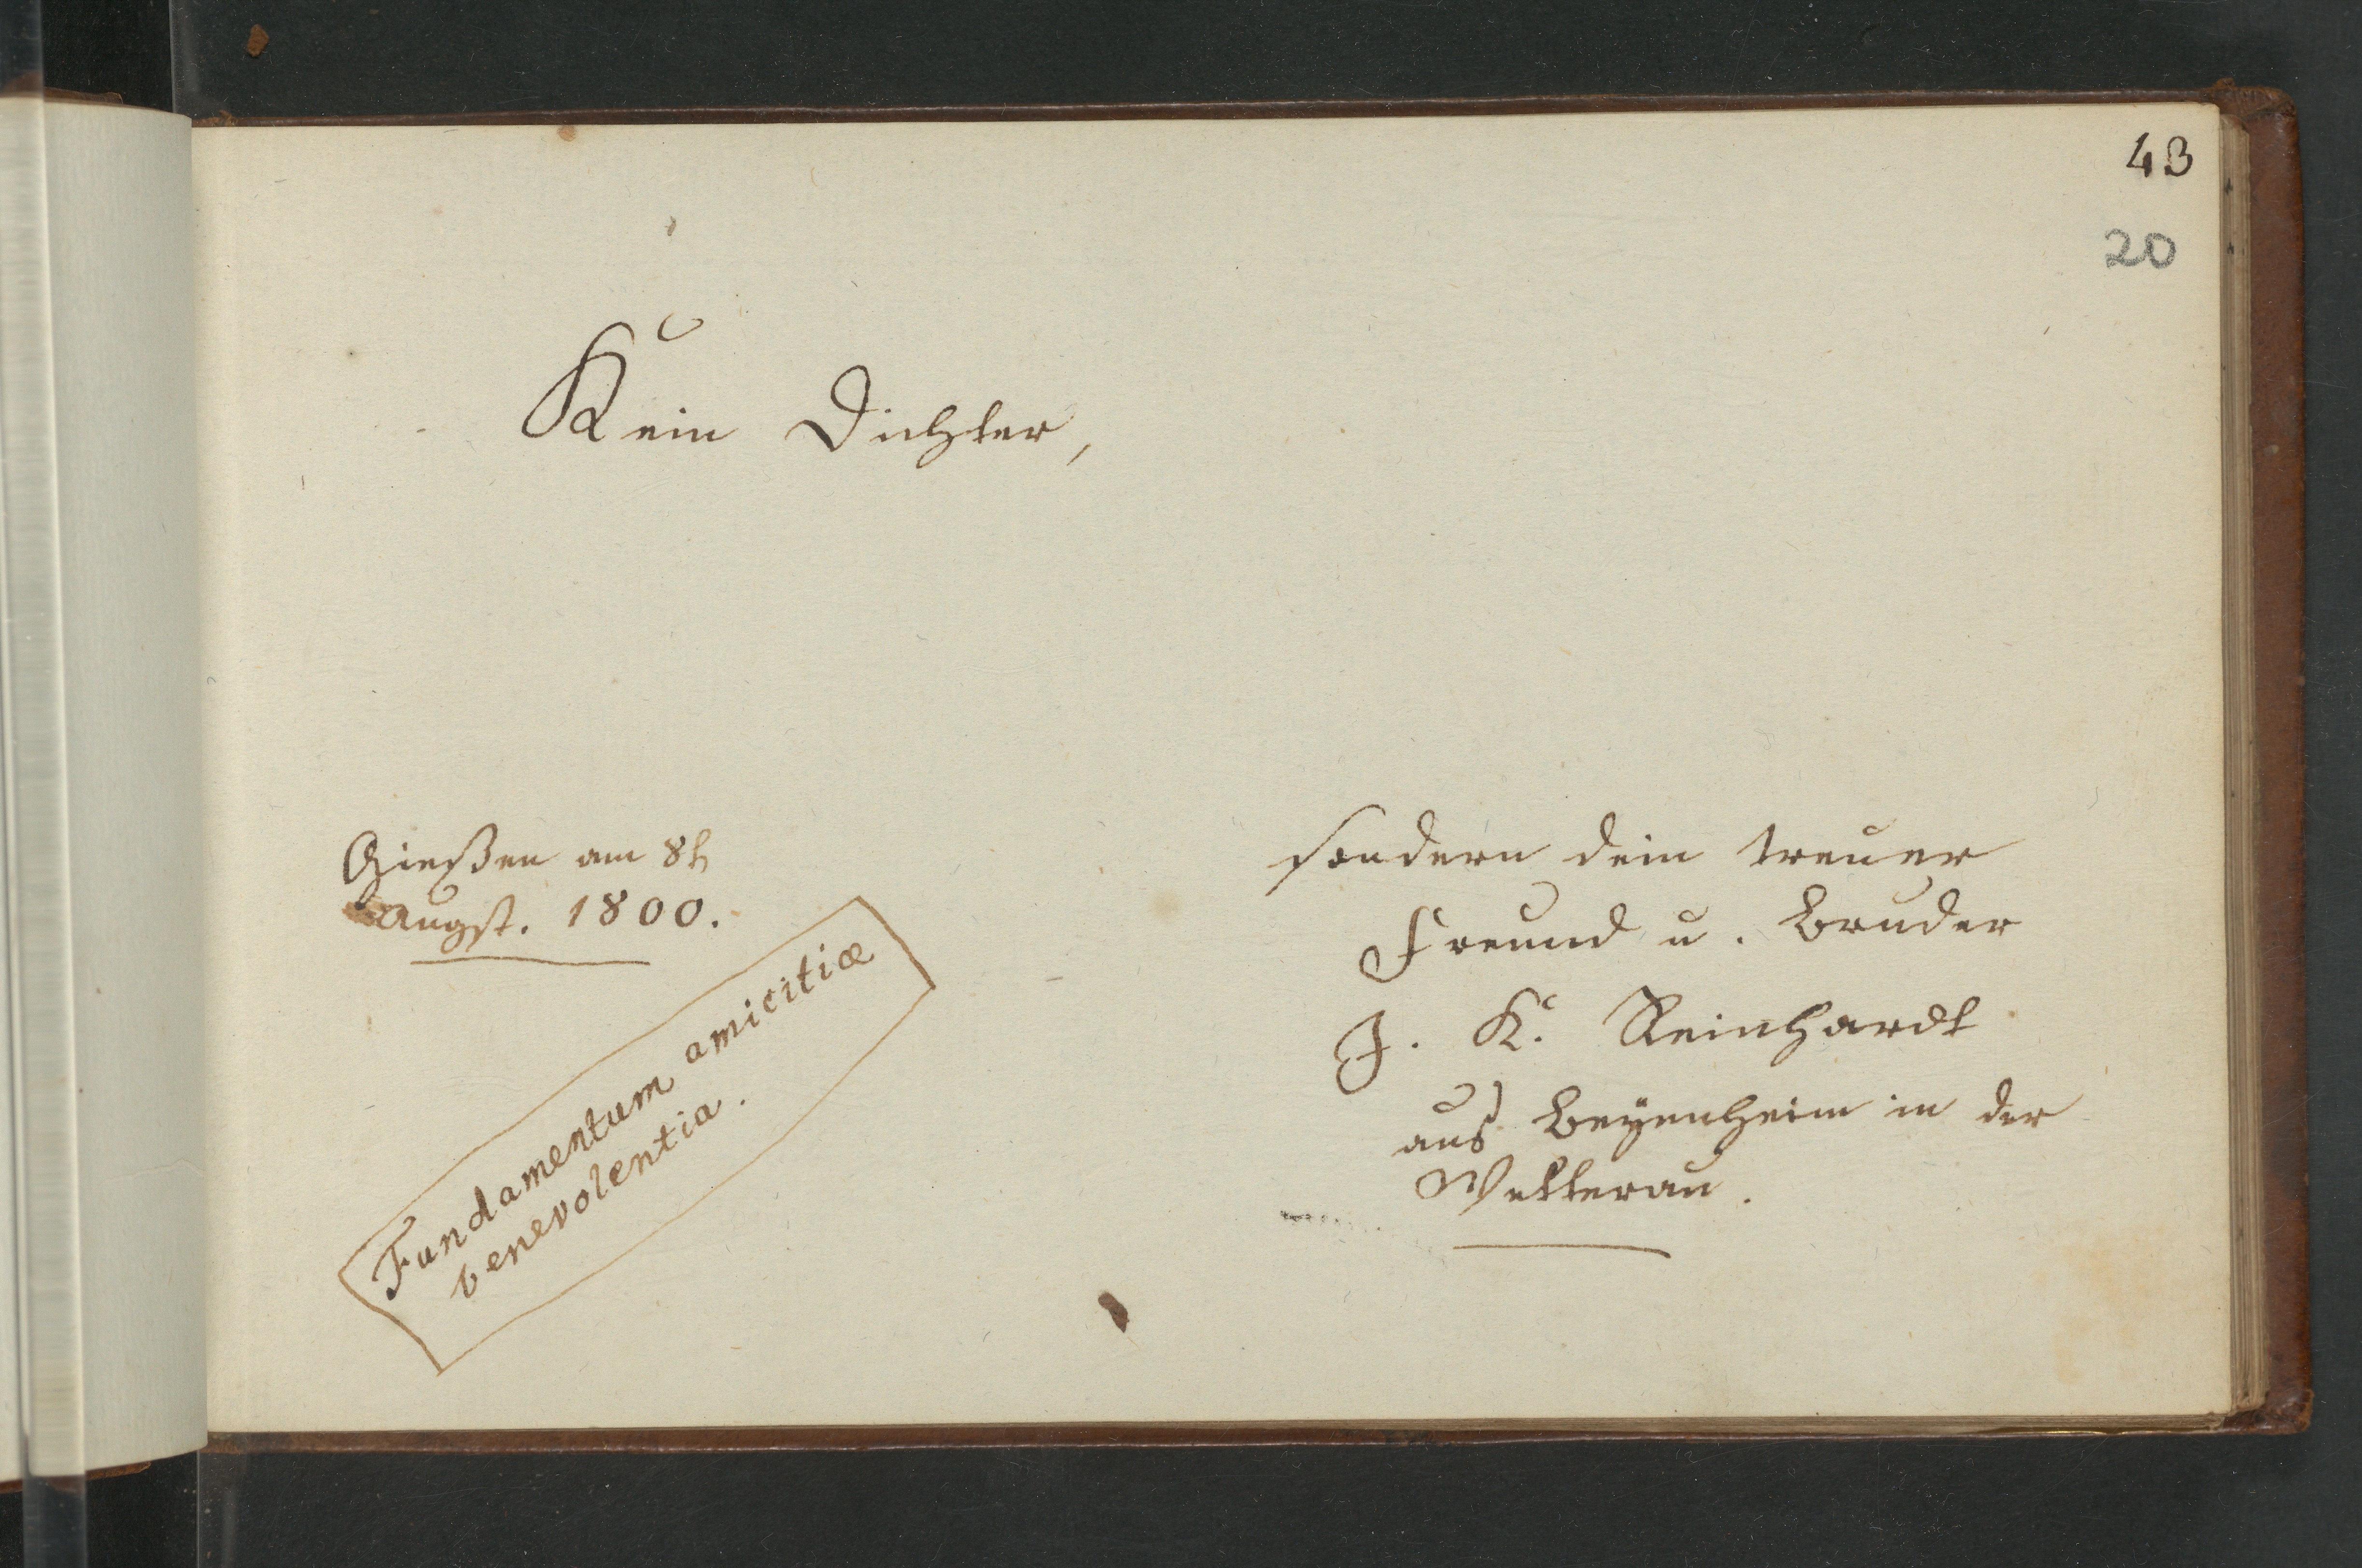 43
20
Kein Dichter,
Gießen am 8t
Augst. 1800.
Fundamentum amicitiæ
benevolentia.
sondern dein treuer
Freund u. Bruder
J. K. Reinhardt
aus Beÿenheim in der
Wetterau.